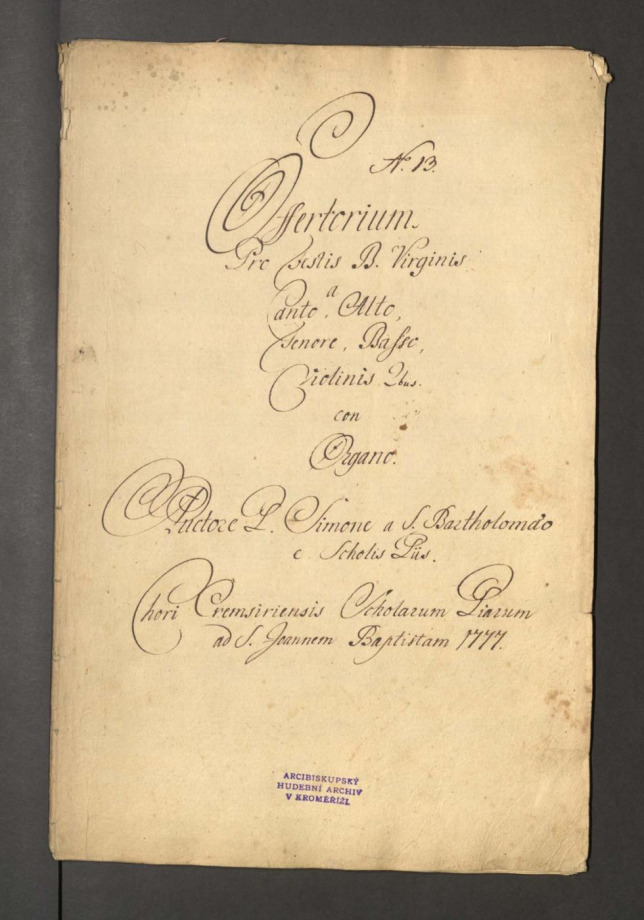 N. 13.
Offertorium.
Pro Festis B. Virginis
a
Canto, Alto,
Tenore, Basso,
Violinis 2bus.
con
Organo.
Auctore P. Simone a S. Bartholomæo
e Scholis Piis.
Chori Cremsiriensis Scholarum Piarum
ad S. Joannem Baptistam 1777.
ARCIBISKUPSKÝ
HUDEBNÍ ARCHIV
V KROMĚŘÍŽI.